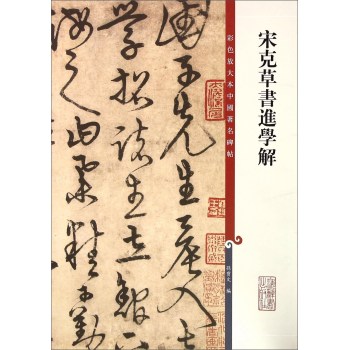 宋克草書進學解
彩色放大本中國著名碑帖
孫寶文 編
國子先生晨入
學招諸生立館
之曰業精